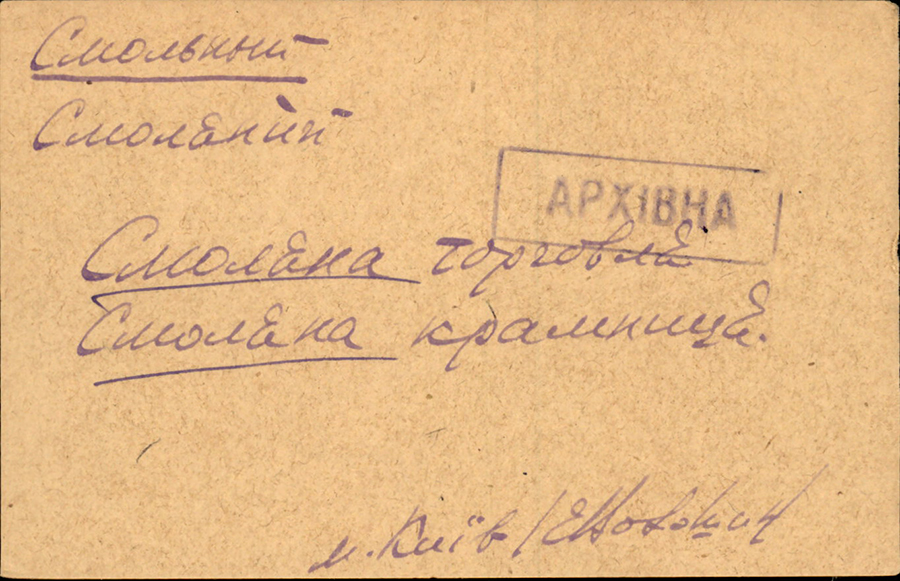 Смольный
Смоляний
АРХІВНА
Смоляна торговля
Смоляна крамниця.
м. Київ /